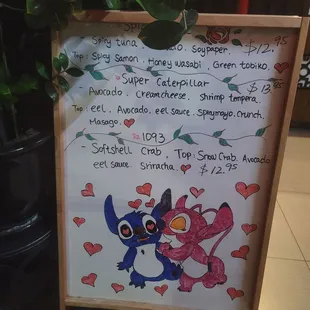 Spicy tuna, Soypaper. $12.95
Top: Spicy Samon, Honey wasabi, Green tobiko.
Super Caterpillar
- Avocado, Creamcheese, Shrimp tempera. $13
Top: eel, Avocado, eel sauce, Spicymayo, Crunch,
Masago.
1093
- Softshell Crab, Top: Snow Crab, Avocado
eel Sauce, Sriracha. $12.95